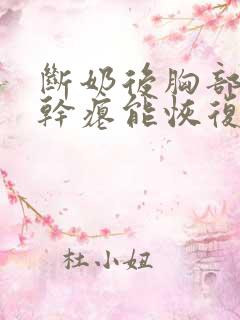 斷奶後胸部
幹瘪能恢復
杜小妞